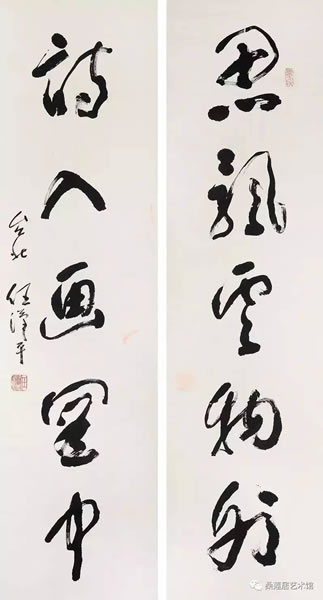 思飄雲物外
詩入画圖中
台北 任漢平
桑莲居艺术馆